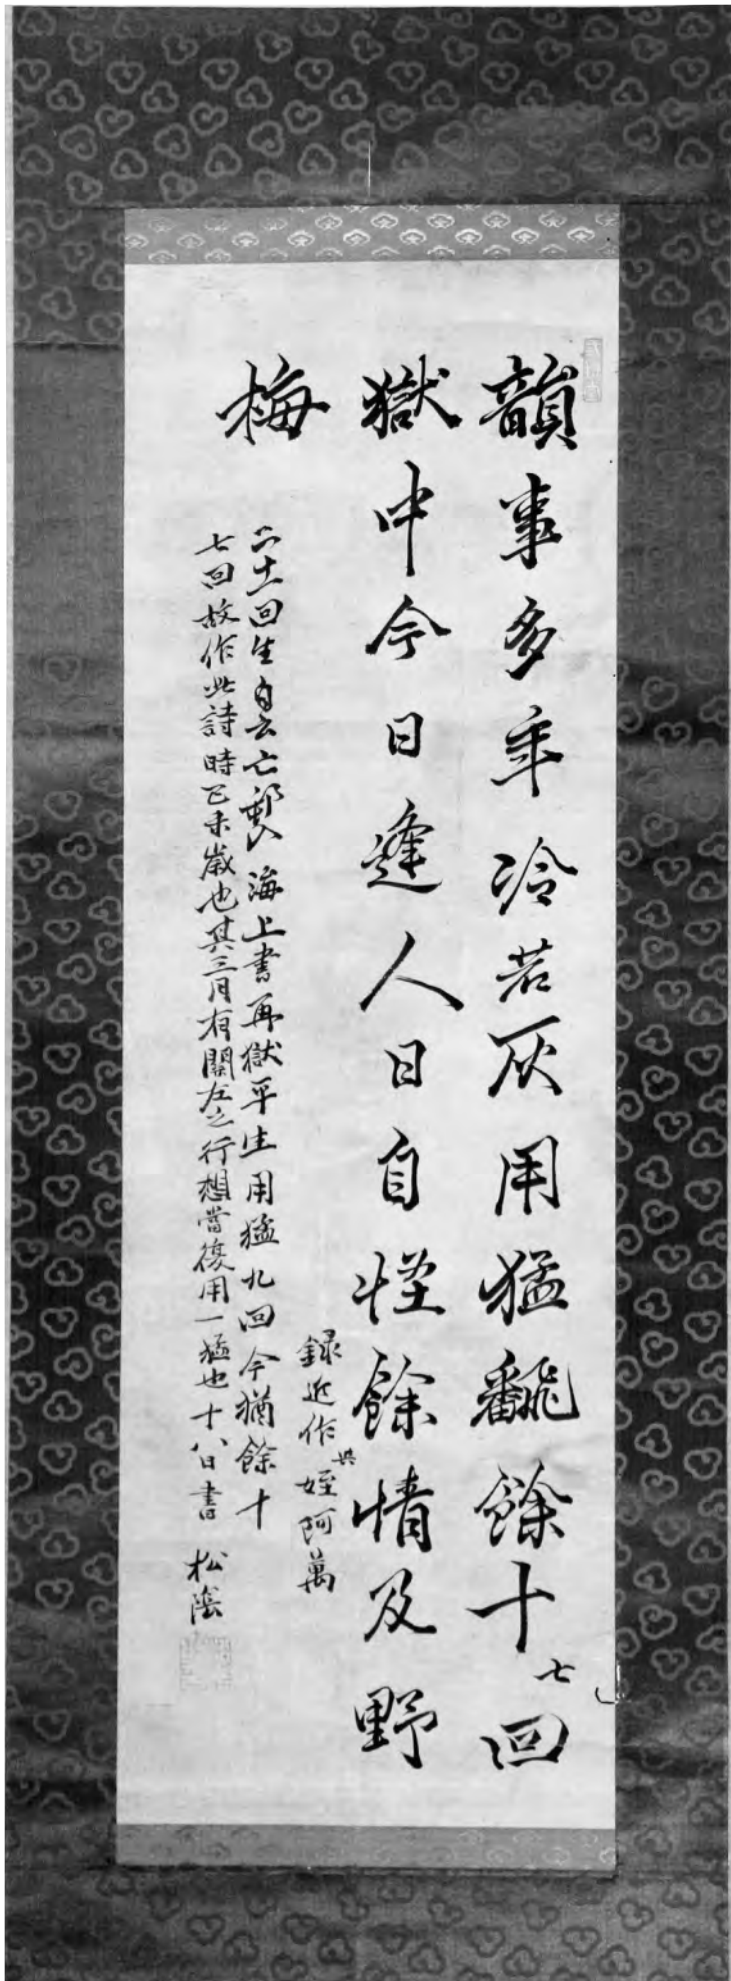 韻事多年冷若灰用猛飜餘十七回
獄中今日逢人日自怪餘情及野
梅
録近作与姪阿萬
二十一回生自去亡邸入海上書再獄平生用猛九回今猶餘十
七回故作此詩時己未歳也其三月有關左之行想當復用一猛也十八日書
松陰